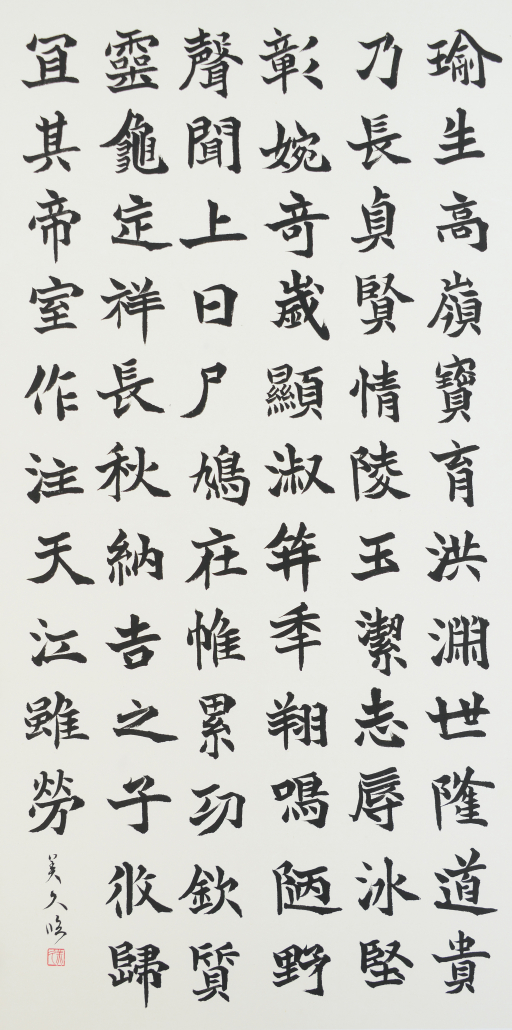 瑜生高嶺寶育洪淵世隆道貴
乃長貞賢情陵玉潔志辱冰堅
彰婉奇歲顯淑笄秊翔鳴陋野
聲聞上日尸鳩在帷累功欽質
靈龜定祥長秋納吉之子攸歸
冝其帝室作注天江雖勞
美久臨